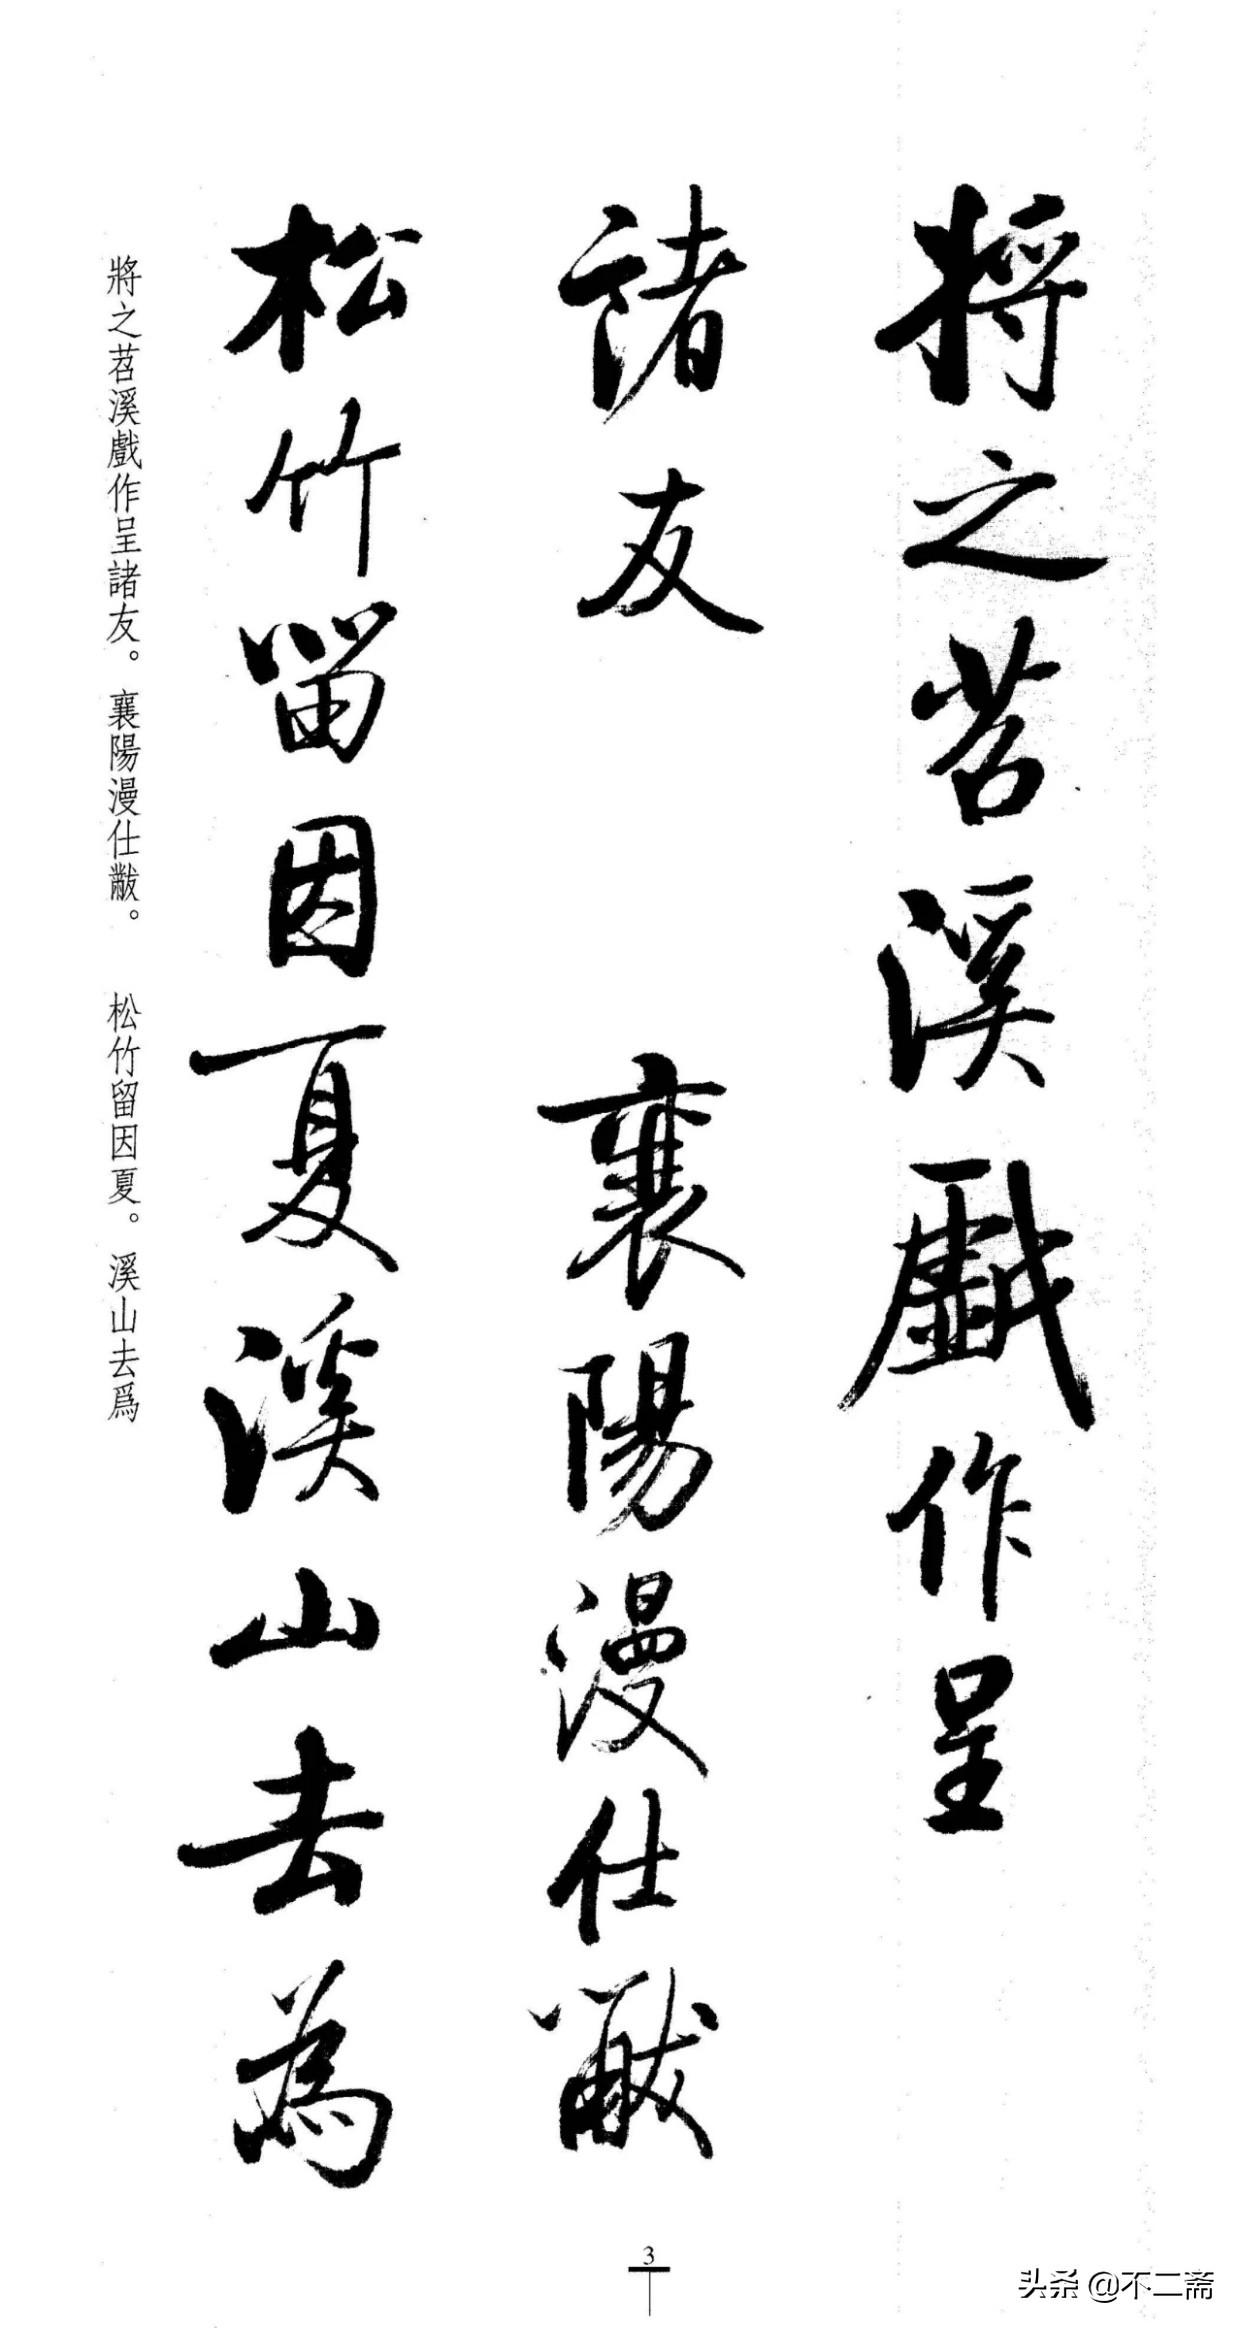 將之苕溪戲作呈
諸友 襄陽漫仕黻
松竹留因夏溪山去為
將之苕溪戲作呈諸友。襄陽漫仕黻。 松竹留因夏。溪山去爲
3
头条 @不二斋